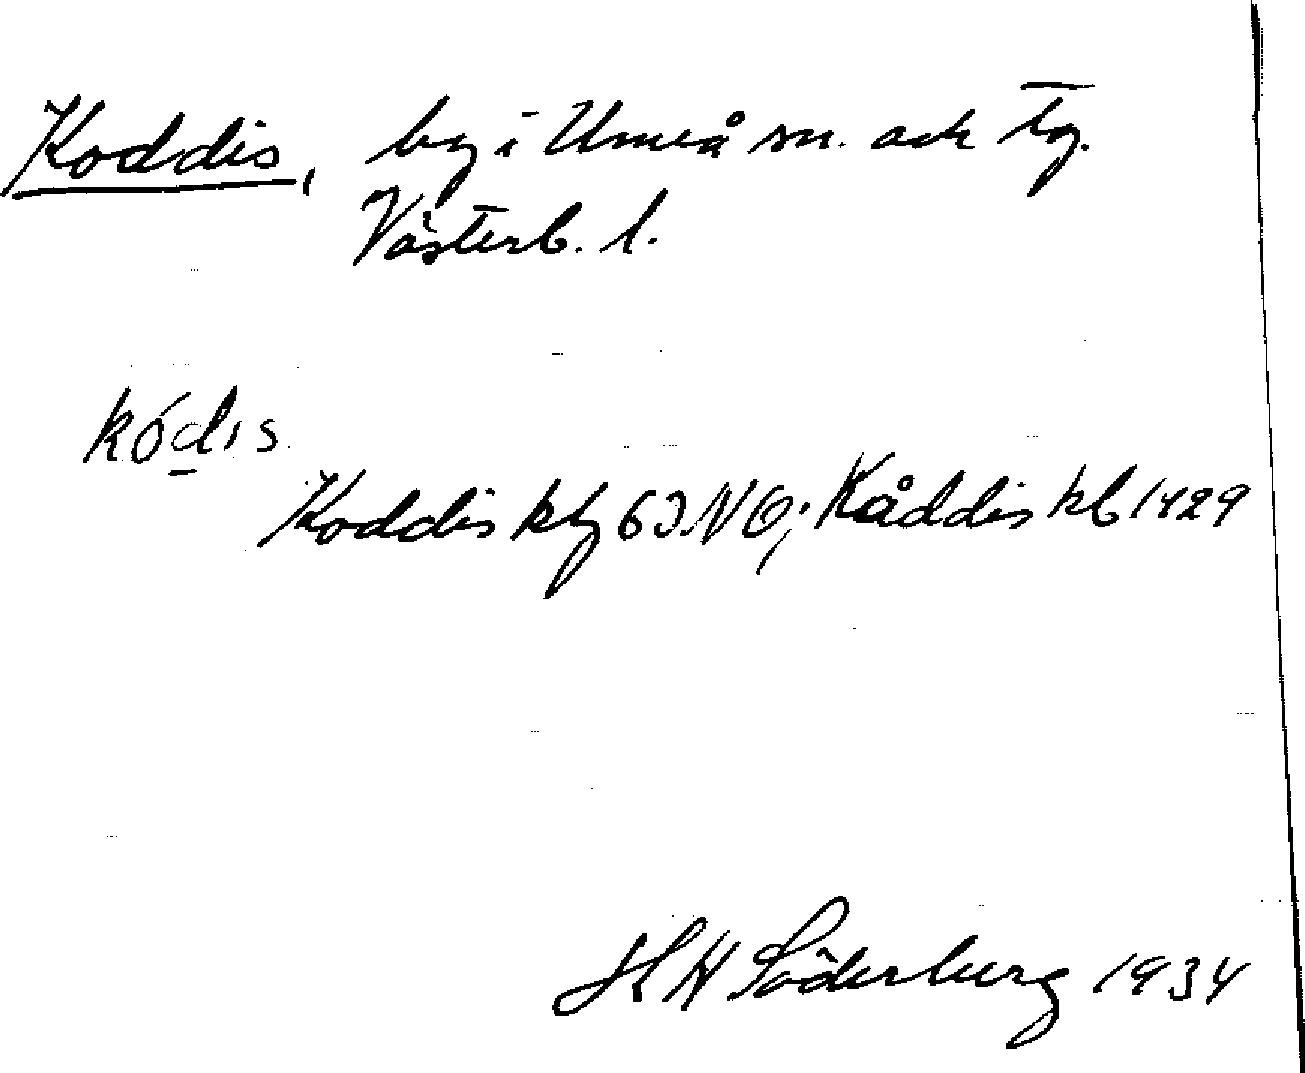 Koddis, by i Umeå sn. och tg.
Västerb. l.
kódis
Koddis kbg 63 NO; Kåddis kb 1429
HH Söderberg 1934